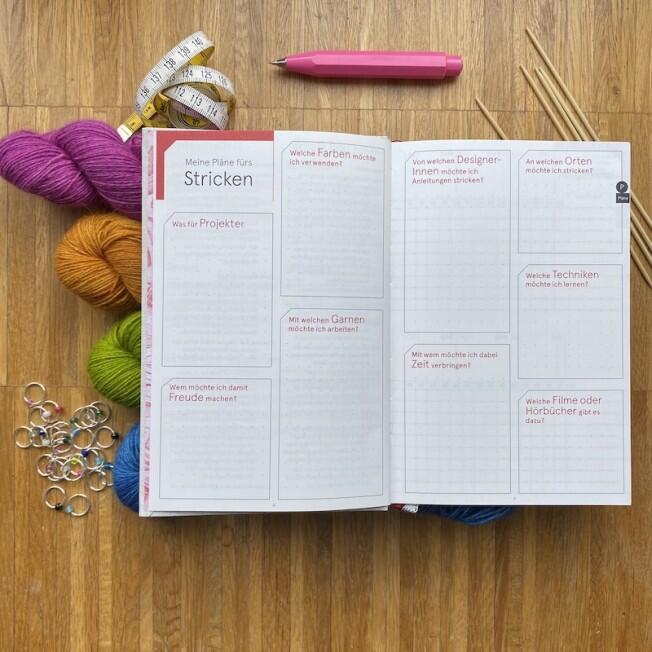 Meine Pläne fürs
Stricken
Was für Projekte?
Wem möchte ich damit
Freude machen?
Welche Farben möchte
ich verwenden?
Mit welchen Garnen
möchte ich arbeiten?
Von welchen Designer-
Innen möchte ich
Anleitungen stricken?
Mit wem möchte ich dabei
Zeit verbringen?
An welchen Orten
möchte ich stricken?
Welche Techniken
möchte ich lernen?
Welche Filme oder
Hörbücher gibt es
dazu?
P
Pläne
140
139
138
137
136
126
125
124
112
113
114